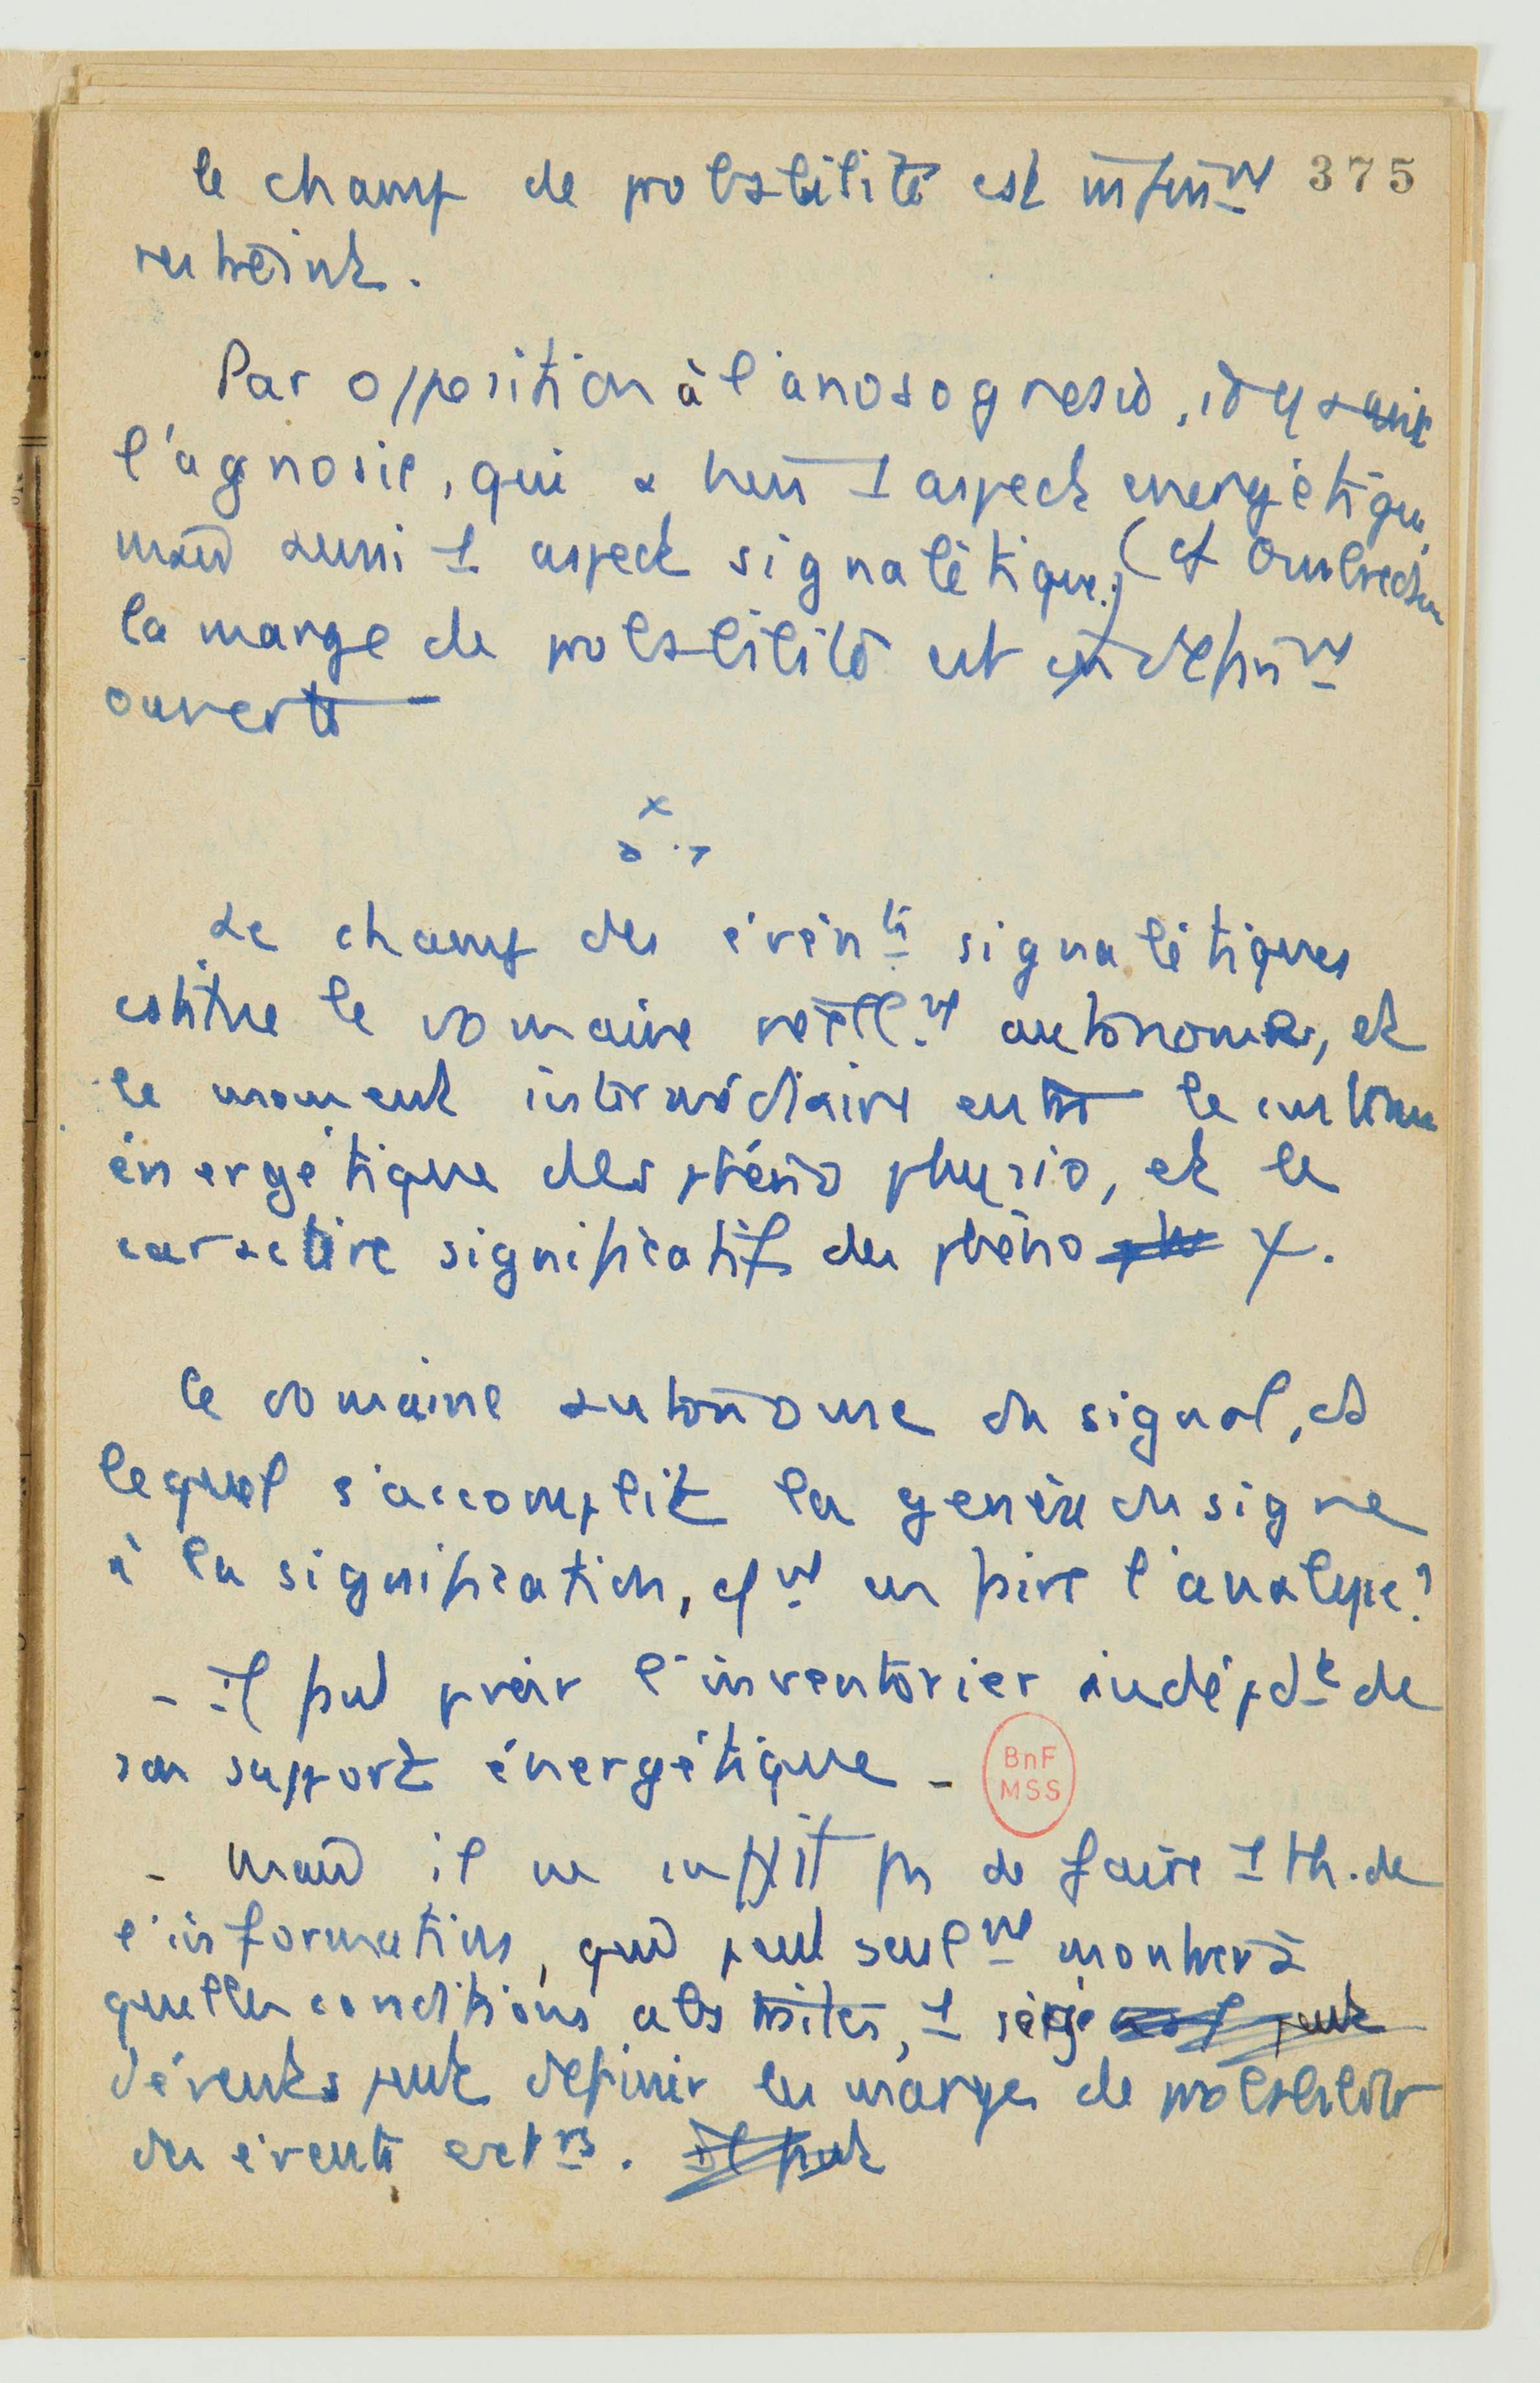 le champ de probabilité est infin^mt 375
restreint.
Par opposition à l'anosognosie,
l'agnosie, qui a bien 1 aspect energétique,
mais aussi 1 aspect signalétique (cf Ombredane
la marge de probabilité est indéfin^mt
ouverte
x
x x
Le champ des évén^ts signalétiques
constitue le domaine réell^mt autonome, et
le moment intermédiaire entre le contenu
énergétique des phéno physio, et le
caractère significatif des phéno ψ.
le domaine autonome du signal, ds
lequel s'accomplit la genèse du signe
à la signification, c^mt en faire l'analyse?
- il faut pvoir l'inventorier indépd^t de
son support énergétique -
BnF
MSS
- mais il ne suffit pas de faire 1 th. de
l'information, qui peut seul^mt montrer à
quelles conditions abstraites, 1 série
d'évents peut définir la marge de probabilité
des évents